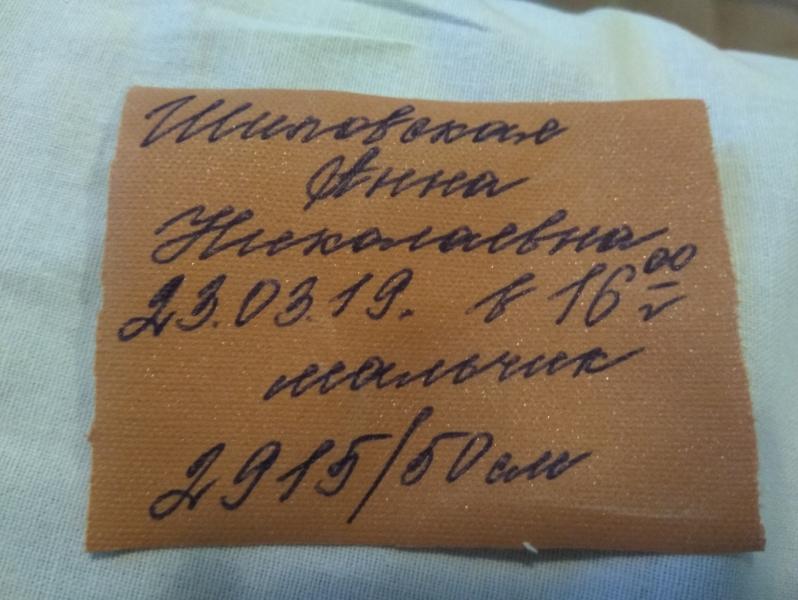 Шиловская
Анна
Николаевна
23.03.19. в 16 00
мальчик
2915/50см